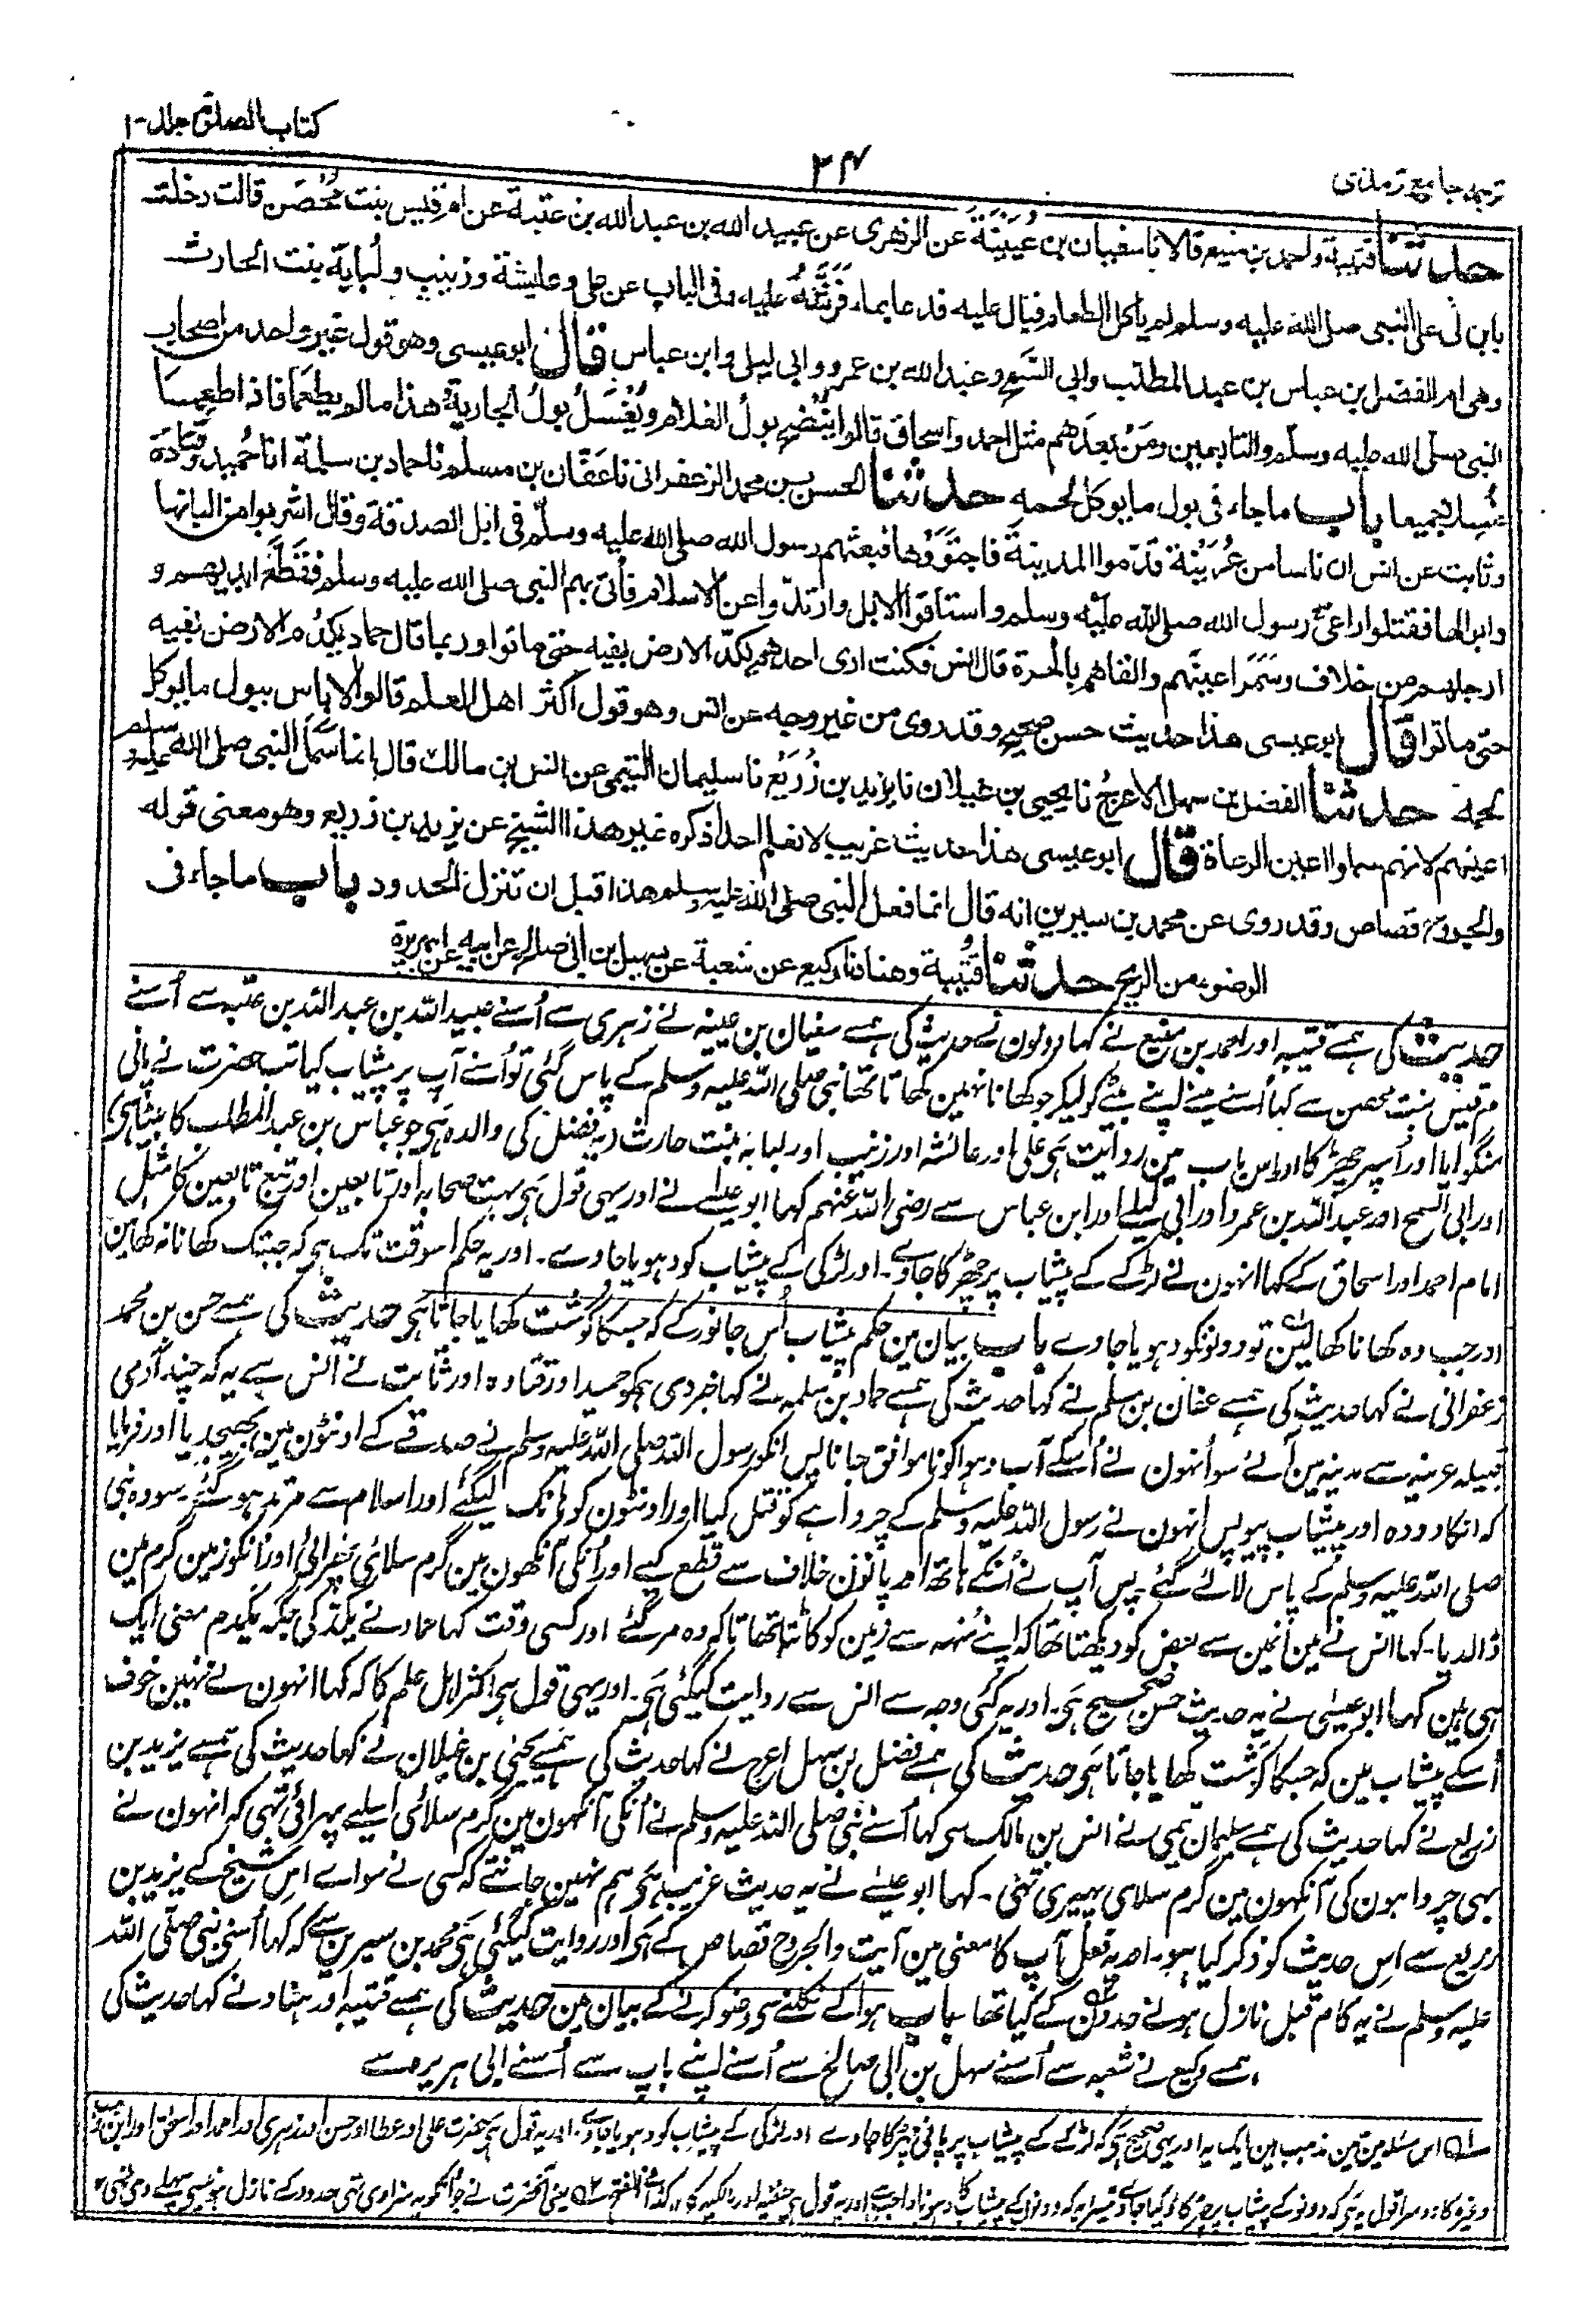 کتاب الصلوة جلد-۱
۳۴
ترجمہ جامع ترمذی
حدثنا قتیبة واحمد بن منیع قالا نا سفیان بن عُیَیْنَة عن الزهری عن عبید الله بن عبد الله بن عتبة عن ام قیس بنت مُحْصَن قالت دخلت
بابن لی علی النبی صلی الله علیه وسلم لم یاکل الطعام فبال علیه فدعا بماء فَرَشَّهُ علیه وفی الباب عن علی وعایشة وزینب ولُبابة بنت الحارث
وهی ام الفضل بن عباس بن عبد المطلب وابی السَّمْح وعبد الله بن عمرو وابی لیلی وابن عباس قال ابو عیسی وهو قول غیر واحد من اصحاب
النبی صلی الله علیه وسلم والتابعین ومَنْ بعدَهم مثل احمد واسحاق قالوا یُنْضَح بولُ الغلام ویُغْسَلُ بولُ الجاریة هذا مالم یطعما فاذا اطعما
غُسِلا جمیعا باب ماجاء فی بول ما یوکل لحمه حدثنا الحسن بن محمد الزعفرانی نا عَفَّان بن مسلم نا حماد بن سلمة انا حُمید وقتادة
وثابت عن انس ان ناسا من عُرَیْنة قدّموا المدینة فاجتَوَوْها فبعثهم رسول الله صلی الله علیه وسلم فی ابل الصدقة وقال اشربوا من البانها
وابوالها فقتلوا راعی رسول الله صلی الله علیه وسلم واستاقوا الابل وارتدّوا عن الاسلام فأتی بهم النبی صلی الله علیه وسلم فقطَّع ایدیهم و
ارجلهم من خلاف وسَمَرَ اعینَهم والقاهم بالحرة قال انس فکنت اری احدهم یکدّ الارض بفیه حتی ماتوا وربما قال حماد یکدُم الارض بفیه
حتی ماتوا قال ابو عیسی هذا حدیث حسن صحیح وقد روی من غیر وجه عن انس وهو قول اکثر اهل العلم قالوا لا باس ببول ما یوکل
لحمه حدثنا الفضل بن سهل الاعرج نا یحیی بن غیلان نا یزید بن زُرَیْع نا سلیمان التیمی عن انس بن مالك قال انما سَمَلَ النبی صلی الله علیه وسلم
اعینهم لانهم سملوا اعین الرعاة قال ابو عیسی هذا حدیث غریب لا نعلم احدا ذکره غیر هذا الشیخ عن یزید بن زریع وهو معنی قوله
والجروح قصاص وقد روی عن محمد بن سیرین انه قال انما فعل النبی صلی الله علیه وسلم هذا قبل ان تنزل الحدود باب ماجاء فی
الوضوء من الریح حدثنا قتیبة وهناد نا وکیع عن شعبة عن سهیل بن ابی صالح عن ابیه عن ابی هریرة
حدیث کی ہمسے قتیبہ اور احمد بن منیع نے کہا دونون نے حدیث کی ہمسے سفیان بن عیینہ نے زہری سے اُسنے عبید اللہ بن عبد اللہ بن عتبہ سے اُسنے
ام قیس بنت محصن سے کہا اُسنے مین اپنے بیٹے کو لیکر جو کھانا نہین کھاتا تھا نبی صلی اللہ علیہ وسلم کے پاس گئی تو اُسنے آپ پر پیشاب کیا تب حضرت نے پانی
منگوایا اور اُسپر چھڑکا اور اس باب مین روایت ہی علی اور عائشہ اور زینب اور لبابہ بنت حارث (یہ فضل کی والدہ ہی جو عباس بن عبد المطلب کا بیٹا ہی)
اور ابی السمح اور عبد اللہ بن عمرو اور ابی لیلے اور ابن عباس سے رضی اللہ عنہم کہا ابو عیسے نے اور یہی قول ہی بہت صحابہ اور تابعین اور تبع تابعین کا مثل
امام احمد اور اسحاق کے کہا انہون نے لڑکے کے پیشاب پر چھڑکا جاوے۔ اور لڑکی کے پیشاب کو دہویا جاوے۔ اور یہ حکم اسوقت تک ہی کہ جبتک کھانا نہ کھائین
اور جب وہ کھانا کھالین تو دونونکو دہویا جاوے باب بیان مین حکم پیشاب اُس جانور کے کہ جسکا گوشت کھایا جاتا ہی حدیث کی ہمسے حسن بن محمد
زعفرانی نے کہا حدیث کی ہمسے عفان بن مسلم نے کہا حدیث کی ہمسے حماد بن سلمہ نے کہا خبر دی ہمکو حمید اور قتادہ اور ثابت نے انس سے یہ کہ چند آدمی
قبیلہ عرینہ سے مدینہ مین آئے سو اُنہون نے اُسکے آب و ہوا کو نا موافق جانا پس انکو رسول اللہ صلی اللہ علیہ وسلم نے صدقے کے اونٹون مین بھیجدیا اور فرمایا
کہ انکا دودہ اور پیشاب پیو پس انہون نے رسول اللہ علیہ وسلم کے چرواہے کو قتل کیا اور اونٹون کو ہانک لیگئے اور اسلام سے مرتد ہو گئے۔ سو وہ نبی
صلی اللہ علیہ وسلم کے پاس لائے گئے۔ پس آپ نے اُنکے ہاتھ اور پانون خلاف سے قطع کیے اور اُنکی آنکھون مین گرم سلائی پھرائی اور اُنکو زمین گرم مین
ڈالدیا۔ کہا انس نے مین اُنمین سے بعض کو دیکھتا تھا کہ اپنے مُنہہ سے زمین کو کاٹتا تھا تاکہ وہ مر گئے اور کسی وقت کہا حماد نے یکدّ کی جگہ یکدم معنی ایک
ہی ہین کہا ابو عیسٰی نے یہ حدیث حسن صحیح ہی۔ اور یہ کئی وجہ سے انس سے روایت کیگئی ہی۔ اور یہی قول ہی اکثر اہل علم کا کہ کہا انہون نے نہین خوف
اُسکے پیشاب مین کہ جسکا گوشت کھایا جاتا ہی حدیث کی ہمسے فضل بن سہل اعرج نے کہا حدیث کی ہمسے یحیٰی بن غیلان نے کہا حدیث کی ہمسے یزید بن
زریع نے کہا حدیث کی ہمسے سلیمان تیمی نے انس بن مالک سی کہا اُسنے نبی صلی اللہ علیہ وسلم نے اُنکی آنکھون مین گرم سلائی اسلیے پہرائی تہی کہ انہون نے
بہی چرواہون کی آنکھون مین گرم سلائی پھیری تھی۔ کہا ابو عیسے نے یہ حدیث غریب ہی ہم نہین جانتے کہ کسی نے سواے اس شیخ کے یزید بن
زریع سے اِس حدیث کو ذکر کیا ہو۔ اور یہ فعل آپ کا معنی مین آیت والجروح قصاص کے ہی اور روایت کیگئی ہی محمد بن سیرین سے کہ کہا اُسنی نبی صلی اللہ
علیہ وسلم نے یہ کام قبل نازل ہونے حدون کے کیا تھا باب ہوا کے نکلنے سی وضو کرنے کے بیان مین حدیث کی ہمسے قتیبہ اور ہناد نے کہا حدیث کی
ہمسے وکیع نے شعبہ سے اُسنے سہل بن ابی صالح سے اُسنے اپنے باپ سے اُسنے ابی ہریرہ سے
۱ اس مسئلہ مین تین مذہب ہین ایک یہ اور یہی صحیح ہی کہ لڑکے کے پیشاب پر پانی چھڑکا جاوے اور لڑکی کے پیشاب کو دہویا جاوے۔ اور یہ قول ہی حضرت علی اور عطا اور حسن اور زہری اور احمد اور اسحٰق اور ابن وہب
وغیرہ کا۔ دوسرا قول یہ ہی کہ دونو کے پیشاب پر چھڑکاؤ کیا جاوے تیسرا یہ کہ دونون کے پیشاب کا دہونا واجب ہے اور یہ قول ہی حنفیہ اور مالکیہ کا۔ کذا فی الفتح ۲ یعنی آنحضرت نے جو اُنکو یہ سزا دی تہی حدود کے نازل ہونیسی پہلے دی تہی